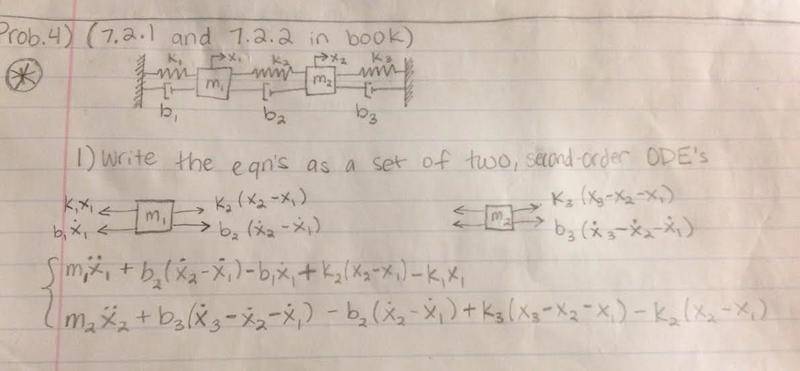 Prob.4) (7.2.1 and 7.2.2 in book)
k₁ x₁ k₂ x₂ k₃
m₁ m₂
b₁ b₂ b₃
1) Write the eqn's as a set of two, second-order ODE's
k₁x₁ m₁ k₂(x₂-x₁) k₃(x₃-x₂-x₁)
b₁ẋ₁ b₂(ẋ₂-ẋ₁) m₂ b₃(ẋ₃-ẋ₂-ẋ₁)
m₁ẍ₁ + b₂(ẋ₂-ẋ₁)-b₁ẋ₁+k₂(x₂-x₁)-k₁x₁
m₂ẍ₂ + b₃(ẋ₃-ẋ₂-ẋ₁) - b₂(ẋ₂-ẋ₁)+k₃(x₃-x₂-x₁)-k₂(x₂-x₁)